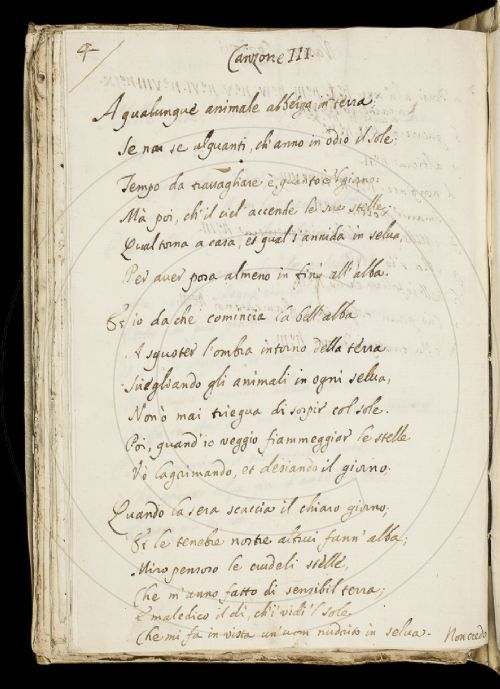 4
Canzone III.
A qualunque animale alberga in terra,
Se non se alquanti, ch'anno in odio il sole;
Tempo da travagliare è, quanto è 'l giorno:
Ma poi, ch'il ciel accende le sue stelle,
Qual torna a casa, et qual s'annida in selva,
Per aver posa almeno in fin' all'alba.
Et io da che comincia la bell'alba
A squoter l'ombra intorno della terra
Svegliando gli animali in ogni selva,
Non ò mai triegua di sospir col sole.
Poi, quand'io veggio fiammeggiar le stelle
Vò lagrimando, et desiando il giorno.
Quando la sera scaccia il chiaro giorno,
Et le tenebre nostre altrui fann' alba;
Miro pensoso le crudeli stelle,
Che m'anno fatto di sensibil terra;
E maledico il dì, ch'i vidi 'l sole
Che mi fà in vista un'uom nudrito in selva.
Non credo